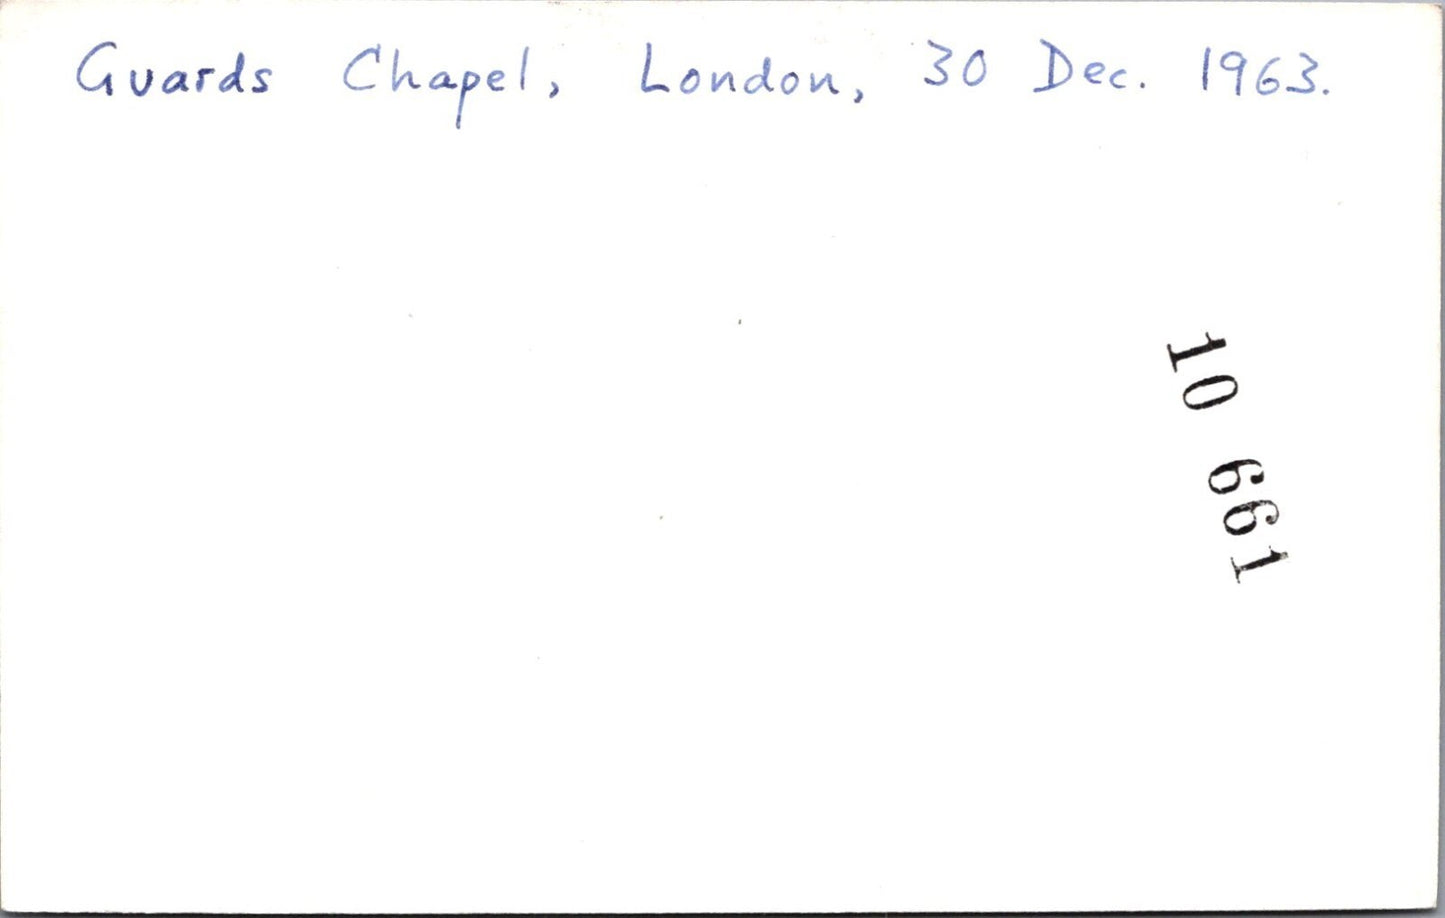 Guards Chapel, London, 30 Dec. 1963.
10 661